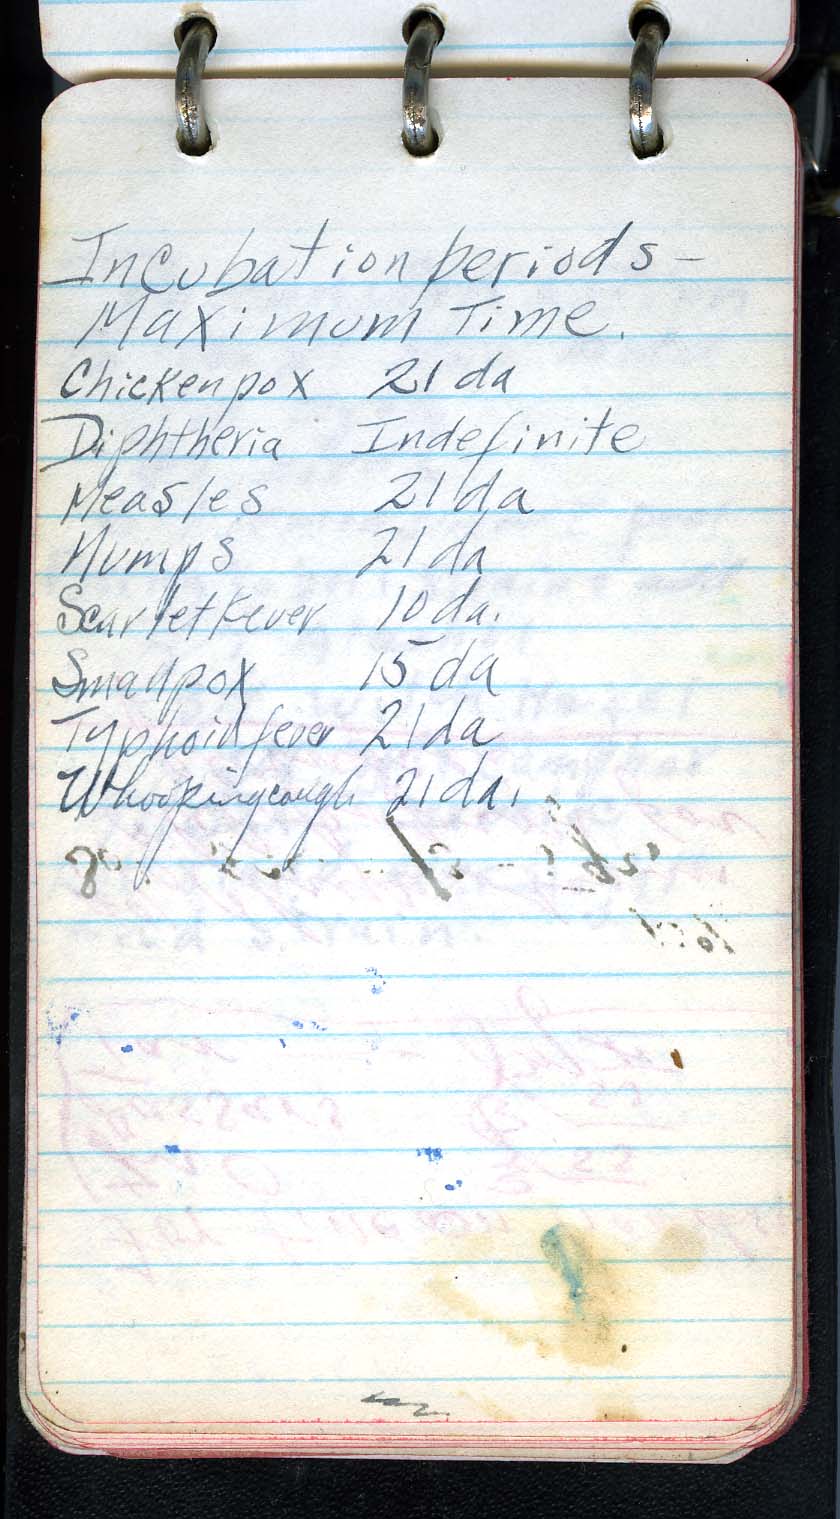 Incubation periods -
Maximum Time.
Chickenpox 21 da
Diphtheria Indefinite
Measles 21 da
Mumps 21 da
Scarlet Fever 10 da.
Smallpox 15 da
Typhoid fever 21 da
Whooping cough 21 da.